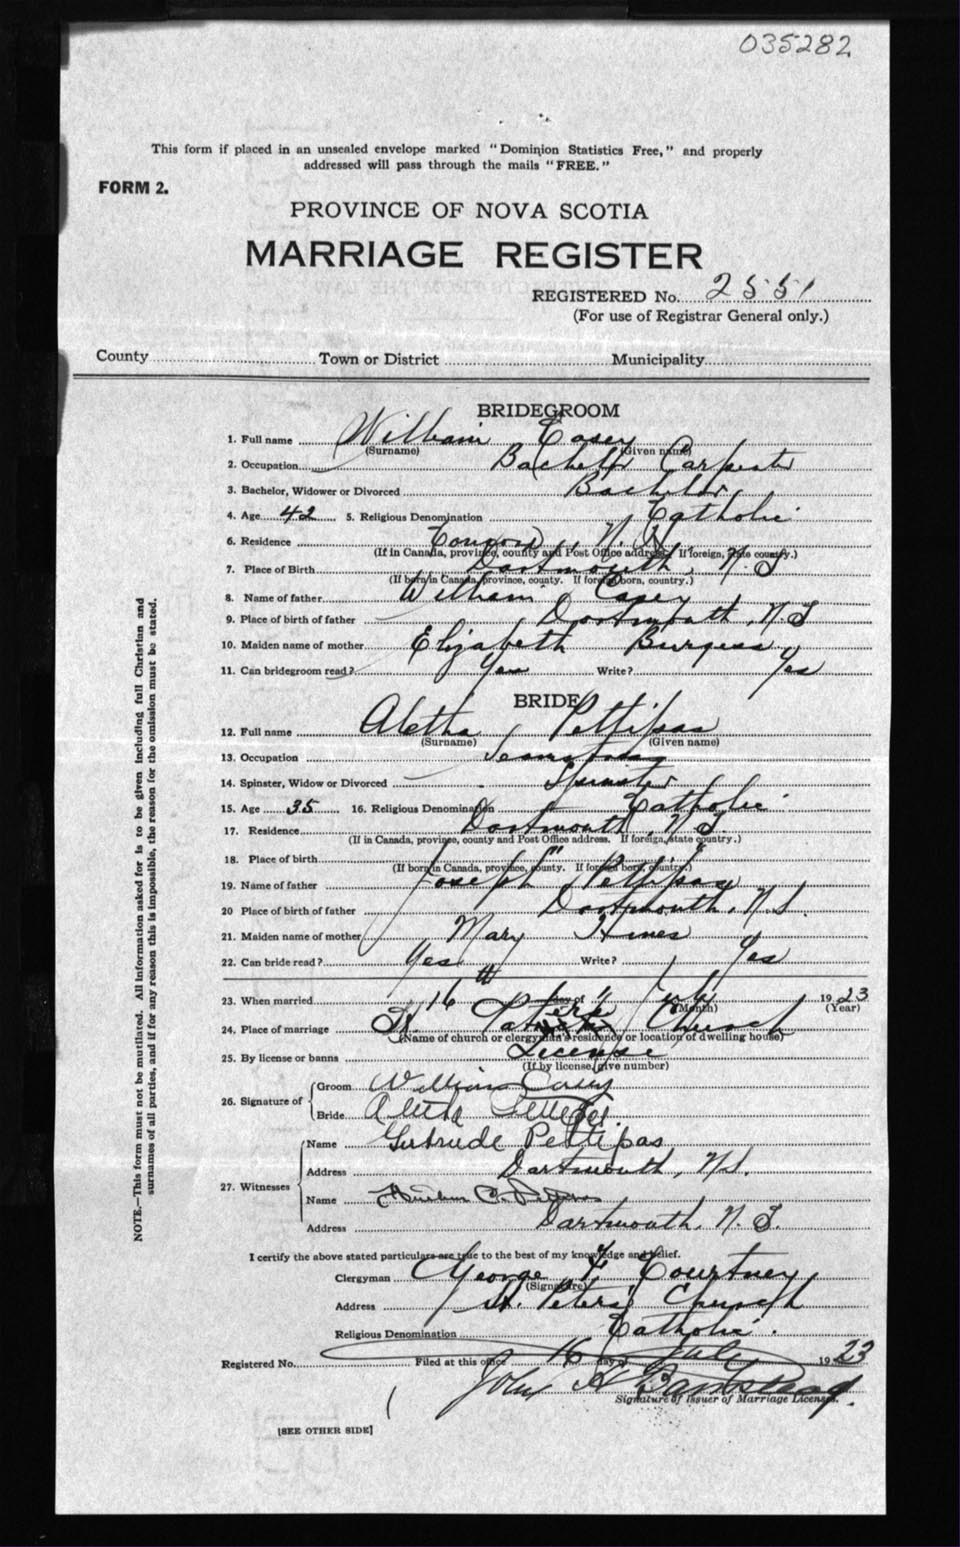 035282
This form if placed in an unsealed envelope marked "Dominion Statistics Free," and properly
addressed will pass through the mails "FREE."
FORM 2.
PROVINCE OF NOVA SCOTIA
MARRIAGE REGISTER
REGISTERED No. 2551
(For use of Registrar General only.)
County Town or District Municipality
BRIDEGROOM
1. Full name William Casey
(Surname) (Given name)
2. Occupation Carpenter
3. Bachelor, Widower or Divorced Bachelor
4. Age 42 5. Religious Denomination Catholic
6. Residence Concord N. H.
(If in Canada, province, county and Post Office address. If foreign, state country.)
7. Place of Birth Dartmouth, N.S.
(If born in Canada, province, county. If foreign born, country.)
8. Name of father William Casey
9. Place of birth of father Dartmouth, N.S.
10. Maiden name of mother Elizabeth Burgess
11. Can bridegroom read? Yes Write? Yes
BRIDE
12. Full name Aletha Pettipas
(Surname) (Given name)
13. Occupation
14. Spinster, Widow or Divorced Spinster
15. Age 35 16. Religious Denomination Catholic
17. Residence Dartmouth, N.S.
(If in Canada, province, county and Post Office address. If foreign, state country.)
18. Place of birth
(If born in Canada, province, county. If foreign born, country.)
19. Name of father Joseph Pettipas
20 Place of birth of father Dartmouth, N.S.
21. Maiden name of mother Mary Hines
22. Can bride read? Yes Write? Yes
23. When married 16th day of July 1923
(Month) (Year)
24. Place of marriage St. Peters Church
(Name of church or clergyman's residence or location of dwelling house)
25. By license or banns License
(If by license, give number)
26. Signature of
Groom William Casey
Bride Aletha Pettipas
27. Witnesses
Name Gertrude Pettipas
Address Dartmouth, N.S.
Name
Address Dartmouth, N.S.
I certify the above stated particulars are true to the best of my knowledge and belief.
Clergyman George F. Courtney
(Signature)
Address St. Peters Church
Religious Denomination Catholic.
Registered No. Filed at this office 16 day of July 1923
John H
Signature of Issuer of Marriage Licenses.
[SEE OTHER SIDE]
NOTE.—This form must not be mutilated. All information asked for is to be given including full Christian and
surnames of all parties, and if for any reason this is impossible, the reason for the omission must be stated.